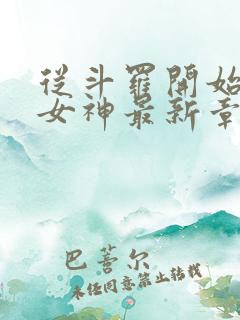 從斗羅開始
女神最新章
巴菩尔
未经同意禁止转载